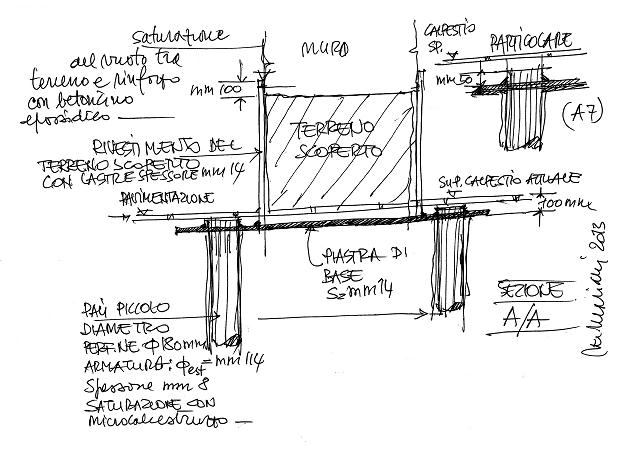 saturazione
del vuoto tra
terreno e rinforzo
con betoncino
epossidico
MURO
CALPESTIO
SP.
PARTICOLARE
mm 100
mm 50
(A7)
RIVESTIMENTO DEL
TERRENO SCOPERTO
CON LASTRE SPESSORE mm 14
TERRENO
SCOPERTO
PAVIMENTAZIONE
SUP. CALPESTIO ATTUALE
100 mm
PIASTRA DI
BASE
S= mm 14
SEZIONE
A/A
2013
PALI PICCOLO
DIAMETRO
PERF.NE Φ 180 mm
ARMATURA: Φest = mm 114
Spessore mm 8
SATURAZIONE CON
microcalcestruzzo